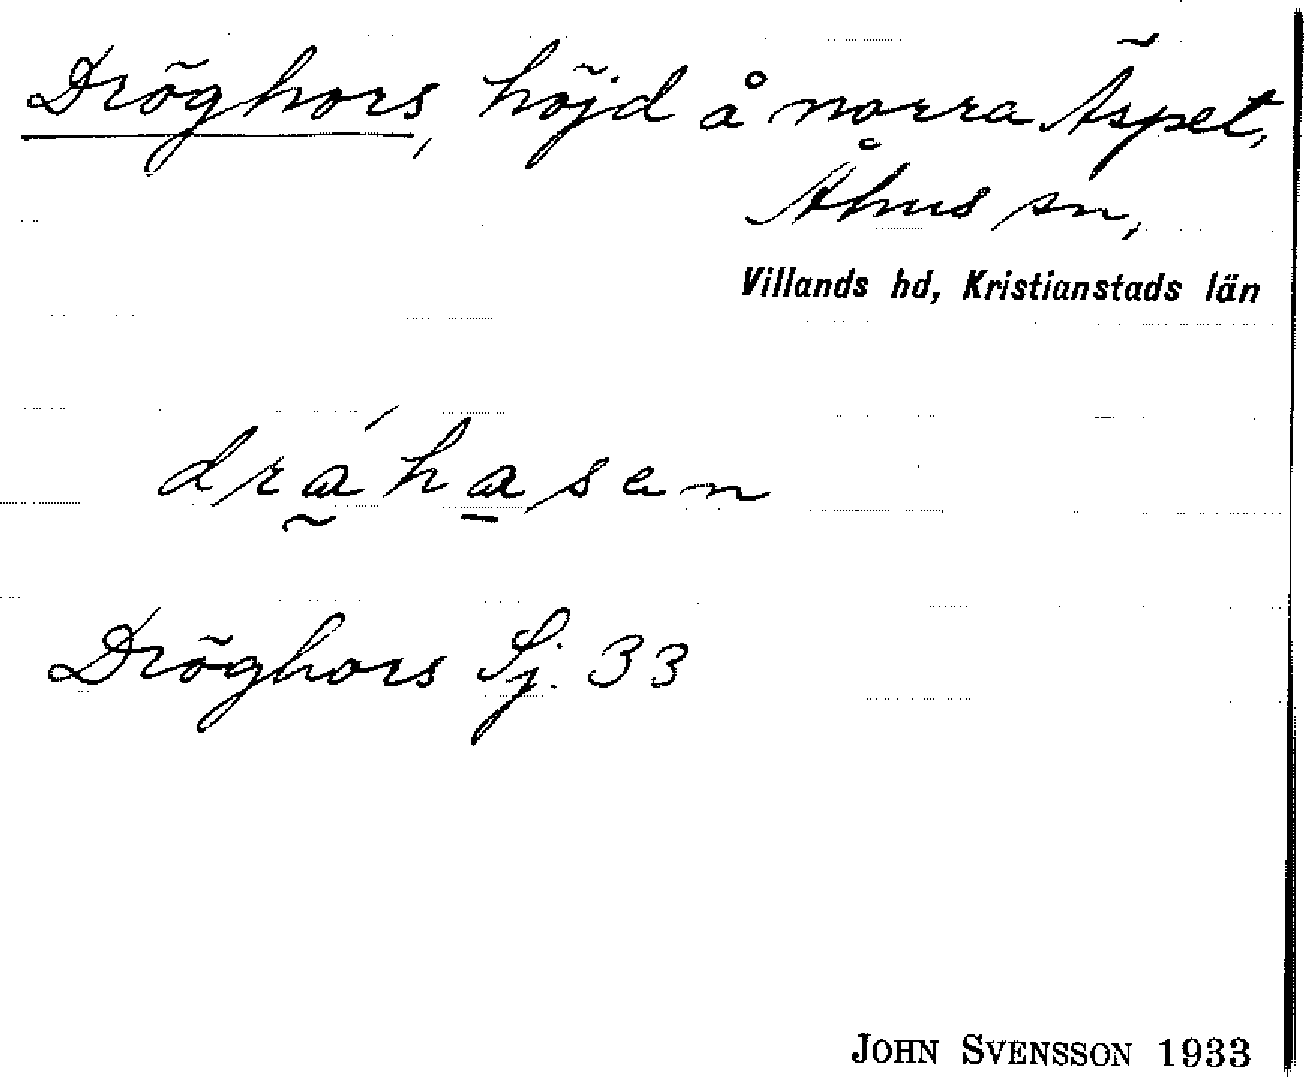 Dröghors, höjd å norra Äspet,
Åhus sn,
Villands hd, Kristianstads län
drá̰ha̱sen
Dröghors Sj. 33
JOHN SVENSSON 1933